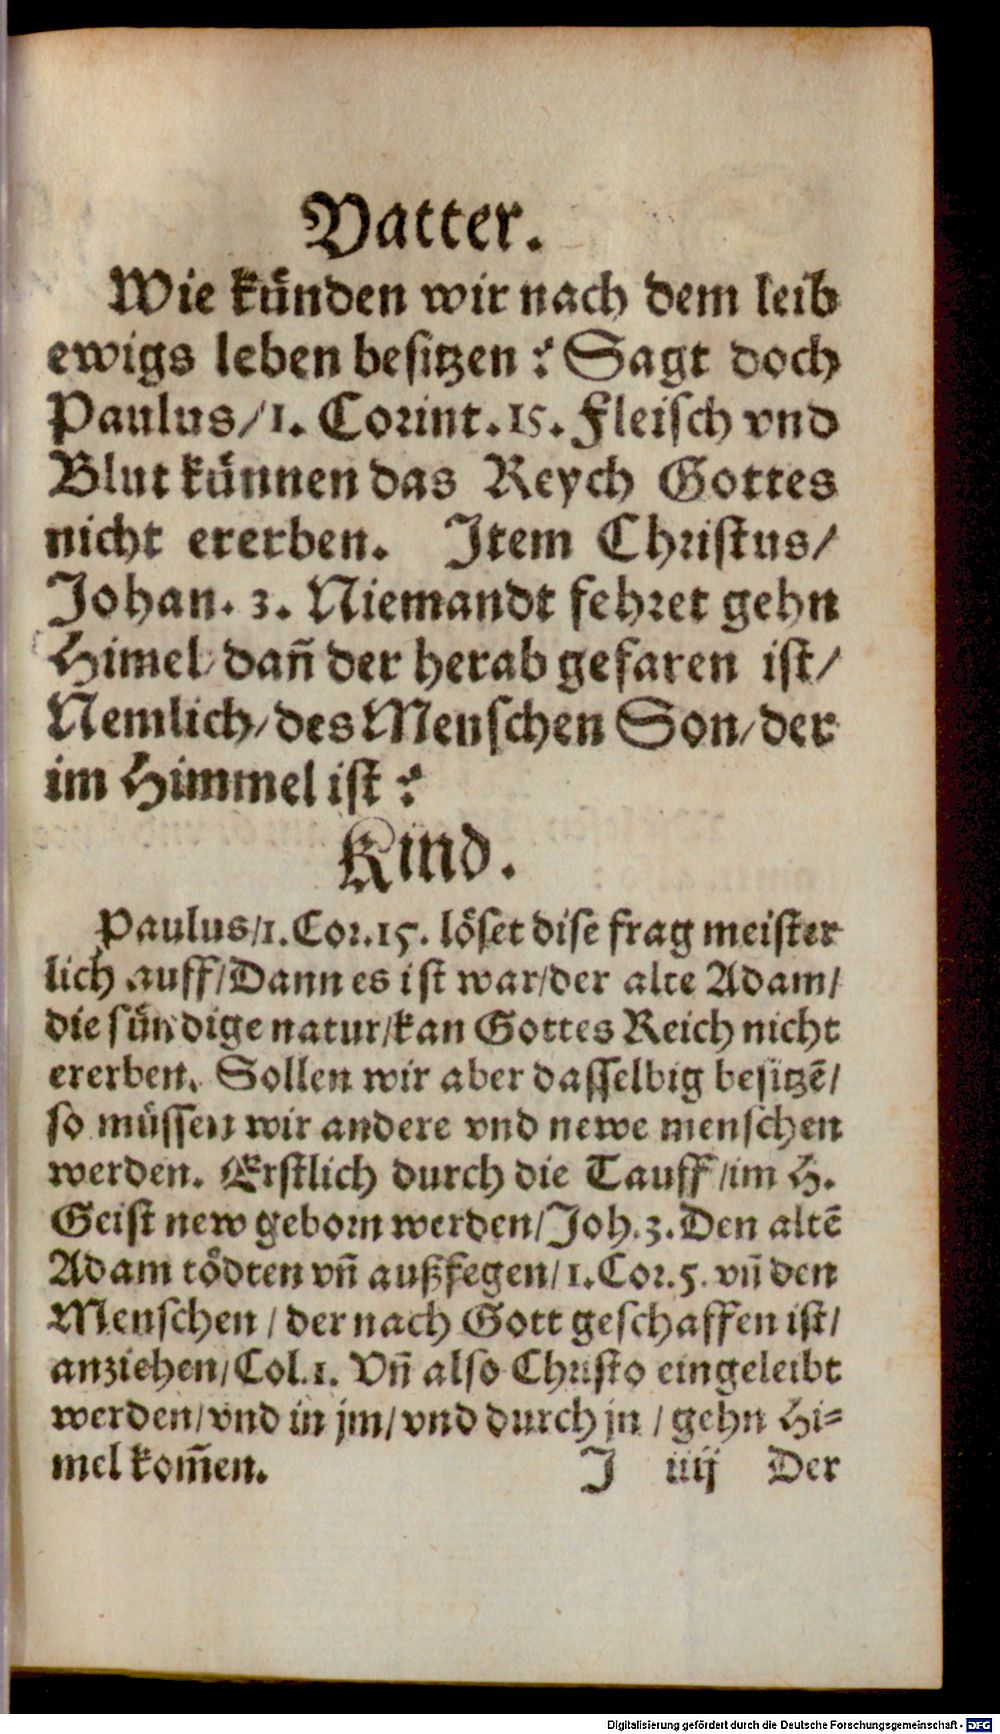 Vatter.
Wie künden wir nach dem leib
ewigs leben besitzen? Sagt doch
Paulus/1. Corint. 15. Fleisch vnd
Blut künnen das Reych Gottes
nicht ererben. Item Christus/
Johan. 3. Niemandt fehret gehn
Himel/dañ der herab gefaren ist/
Nemlich/des Menschen Son/der
im Himmel ist?
Kind.
Paulus/1. Cor. 15. löset dise frag meister
lich auff/Dann es ist war/der alte Adam/
die sündige natur/kan Gottes Reich nicht
ererben. Sollen wir aber dasselbig besitzē/
so müssen wir andere vnd newe menschen
werden. Erstlich durch die Tauff/im H.
Geist new geborn werden/Joh. 3. Den altē
Adam tödten vñ außfegen/1. Cor. 5. vñ den
Menschen/der nach Gott geschaffen ist/
anziehen/Col. 1. Vñ also Christo eingeleibt
werden/vnd in jm/vnd durch jn/gehn Hi=
mel kom̃en. J iiij Der
Digitalisierung gefördert durch die Deutsche Forschungsgemeinschaft - DFG